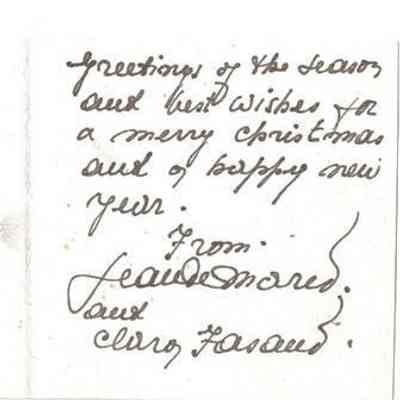 greetings of the season
and best wishes for
a merry christmas
and a happy new
year.
From.
and
Clara Fasano.